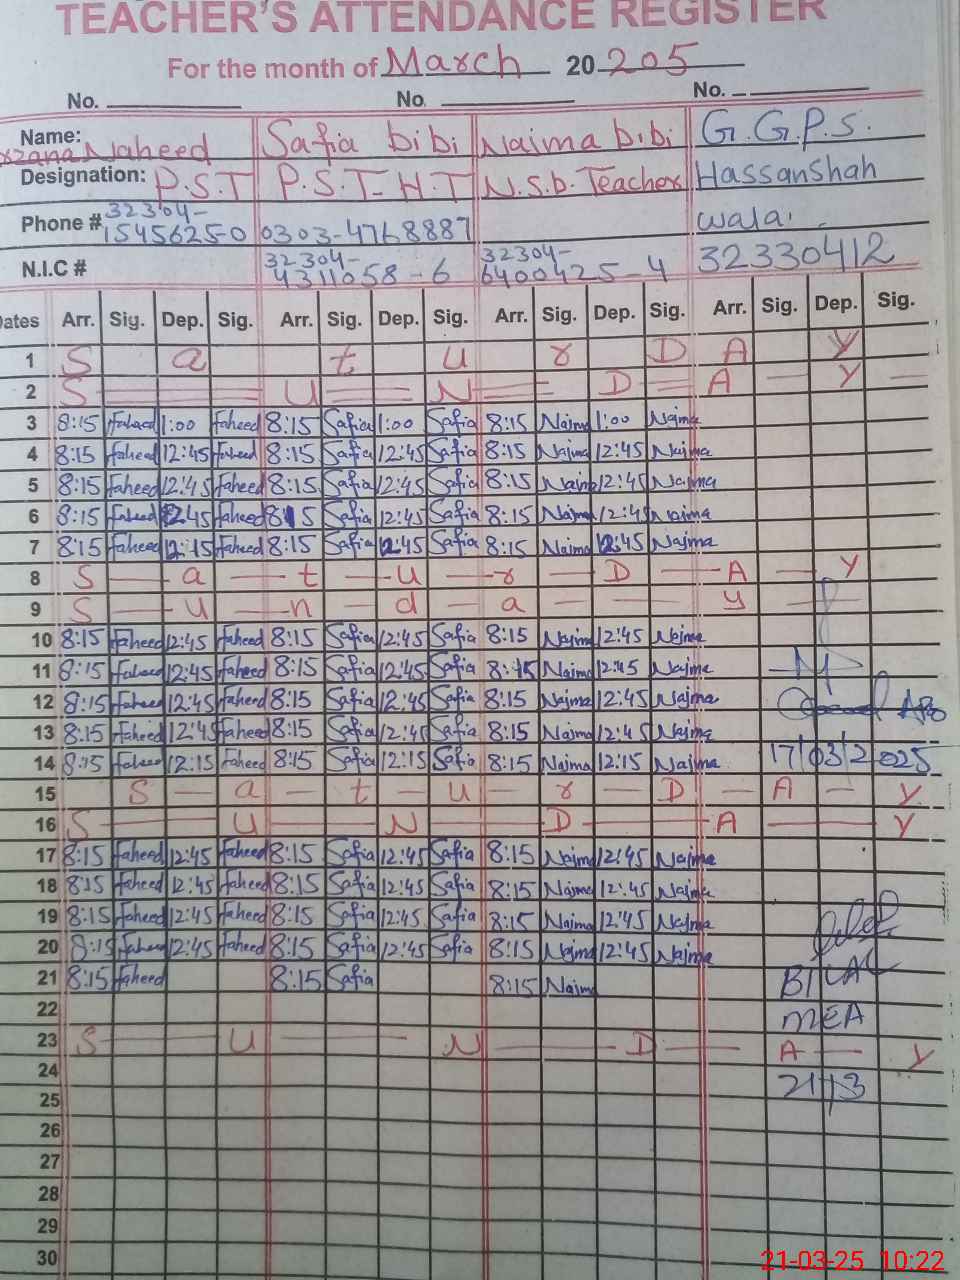 TEACHER'S ATTENDANCE REGISTER
For the month of March 20 205
No. No. No.
Name: Naheed Safia bibi Najma bibi G.G.P.S.
Designation: P.S.T P.S.T-H.T N.S.b.Teacher Hassanshah
Phone # 32304- wala
15456250 0303-4768887
N.I.C # 32304- 32304- 32330412
4311058-6 6400425-4
Dates Arr. Sig. Dep. Sig. Arr. Sig. Dep. Sig. Arr. Sig. Dep. Sig. Arr. Sig. Dep. Sig.
1 S a t u r D A Y
2 S U N D A Y
3 8:15 Faheed 1:00 Faheed 8:15 Safia 1:00 Safia 8:15 Najma 1:00 Najma
4 8:15 Faheed 12:45 Faheed 8:15 Safia 12:45 Safia 8:15 Najma 12:45 Najma
5 8:15 Faheed 12:45 Faheed 8:15 Safia 12:45 Safia 8:15 Najma 12:45 Najma
6 8:15 Faheed 12:45 Faheed 8:15 Safia 12:45 Safia 8:15 Najma 12:45 Najma
7 8:15 Faheed 12:15 Faheed 8:15 Safia 12:45 Safia 8:15 Najma 12:45 Najma
8 S a t u r D A Y
9 S u n d a y
10 8:15 Faheed 12:45 Faheed 8:15 Safia 12:45 Safia 8:15 Najma 12:45 Najma
11 8:15 Faheed 12:45 Faheed 8:15 Safia 12:45 Safia 8:15 Najma 12:45 Najma
12 8:15 Faheed 12:45 Faheed 8:15 Safia 12:45 Safia 8:15 Najma 12:45 Najma
13 8:15 Faheed 12:45 Faheed 8:15 Safia 12:45 Safia 8:15 Najma 12:45 Najma
14 8:15 Faheed 12:15 Faheed 8:15 Safia 12:15 Safia 8:15 Najma 12:15 Najma 17/03/2025
15 S a t u r D A Y
16 S U N D A Y
17 8:15 Faheed 12:45 Faheed 8:15 Safia 12:45 Safia 8:15 Najma 12:45 Najma
18 8:15 Faheed 12:45 Faheed 8:15 Safia 12:45 Safia 8:15 Najma 12:45 Najma
19 8:15 Faheed 12:45 Faheed 8:15 Safia 12:45 Safia 8:15 Najma 12:45 Najma
20 8:15 Faheed 12:45 Faheed 8:15 Safia 12:45 Safia 8:15 Najma 12:45 Najma
21 8:15 Faheed 8:15 Safia 8:15 Najma BILAL
22 MEA
23 S U N D A Y
24 21/3
25
26
27
28
29
30
21-03-25 10:22